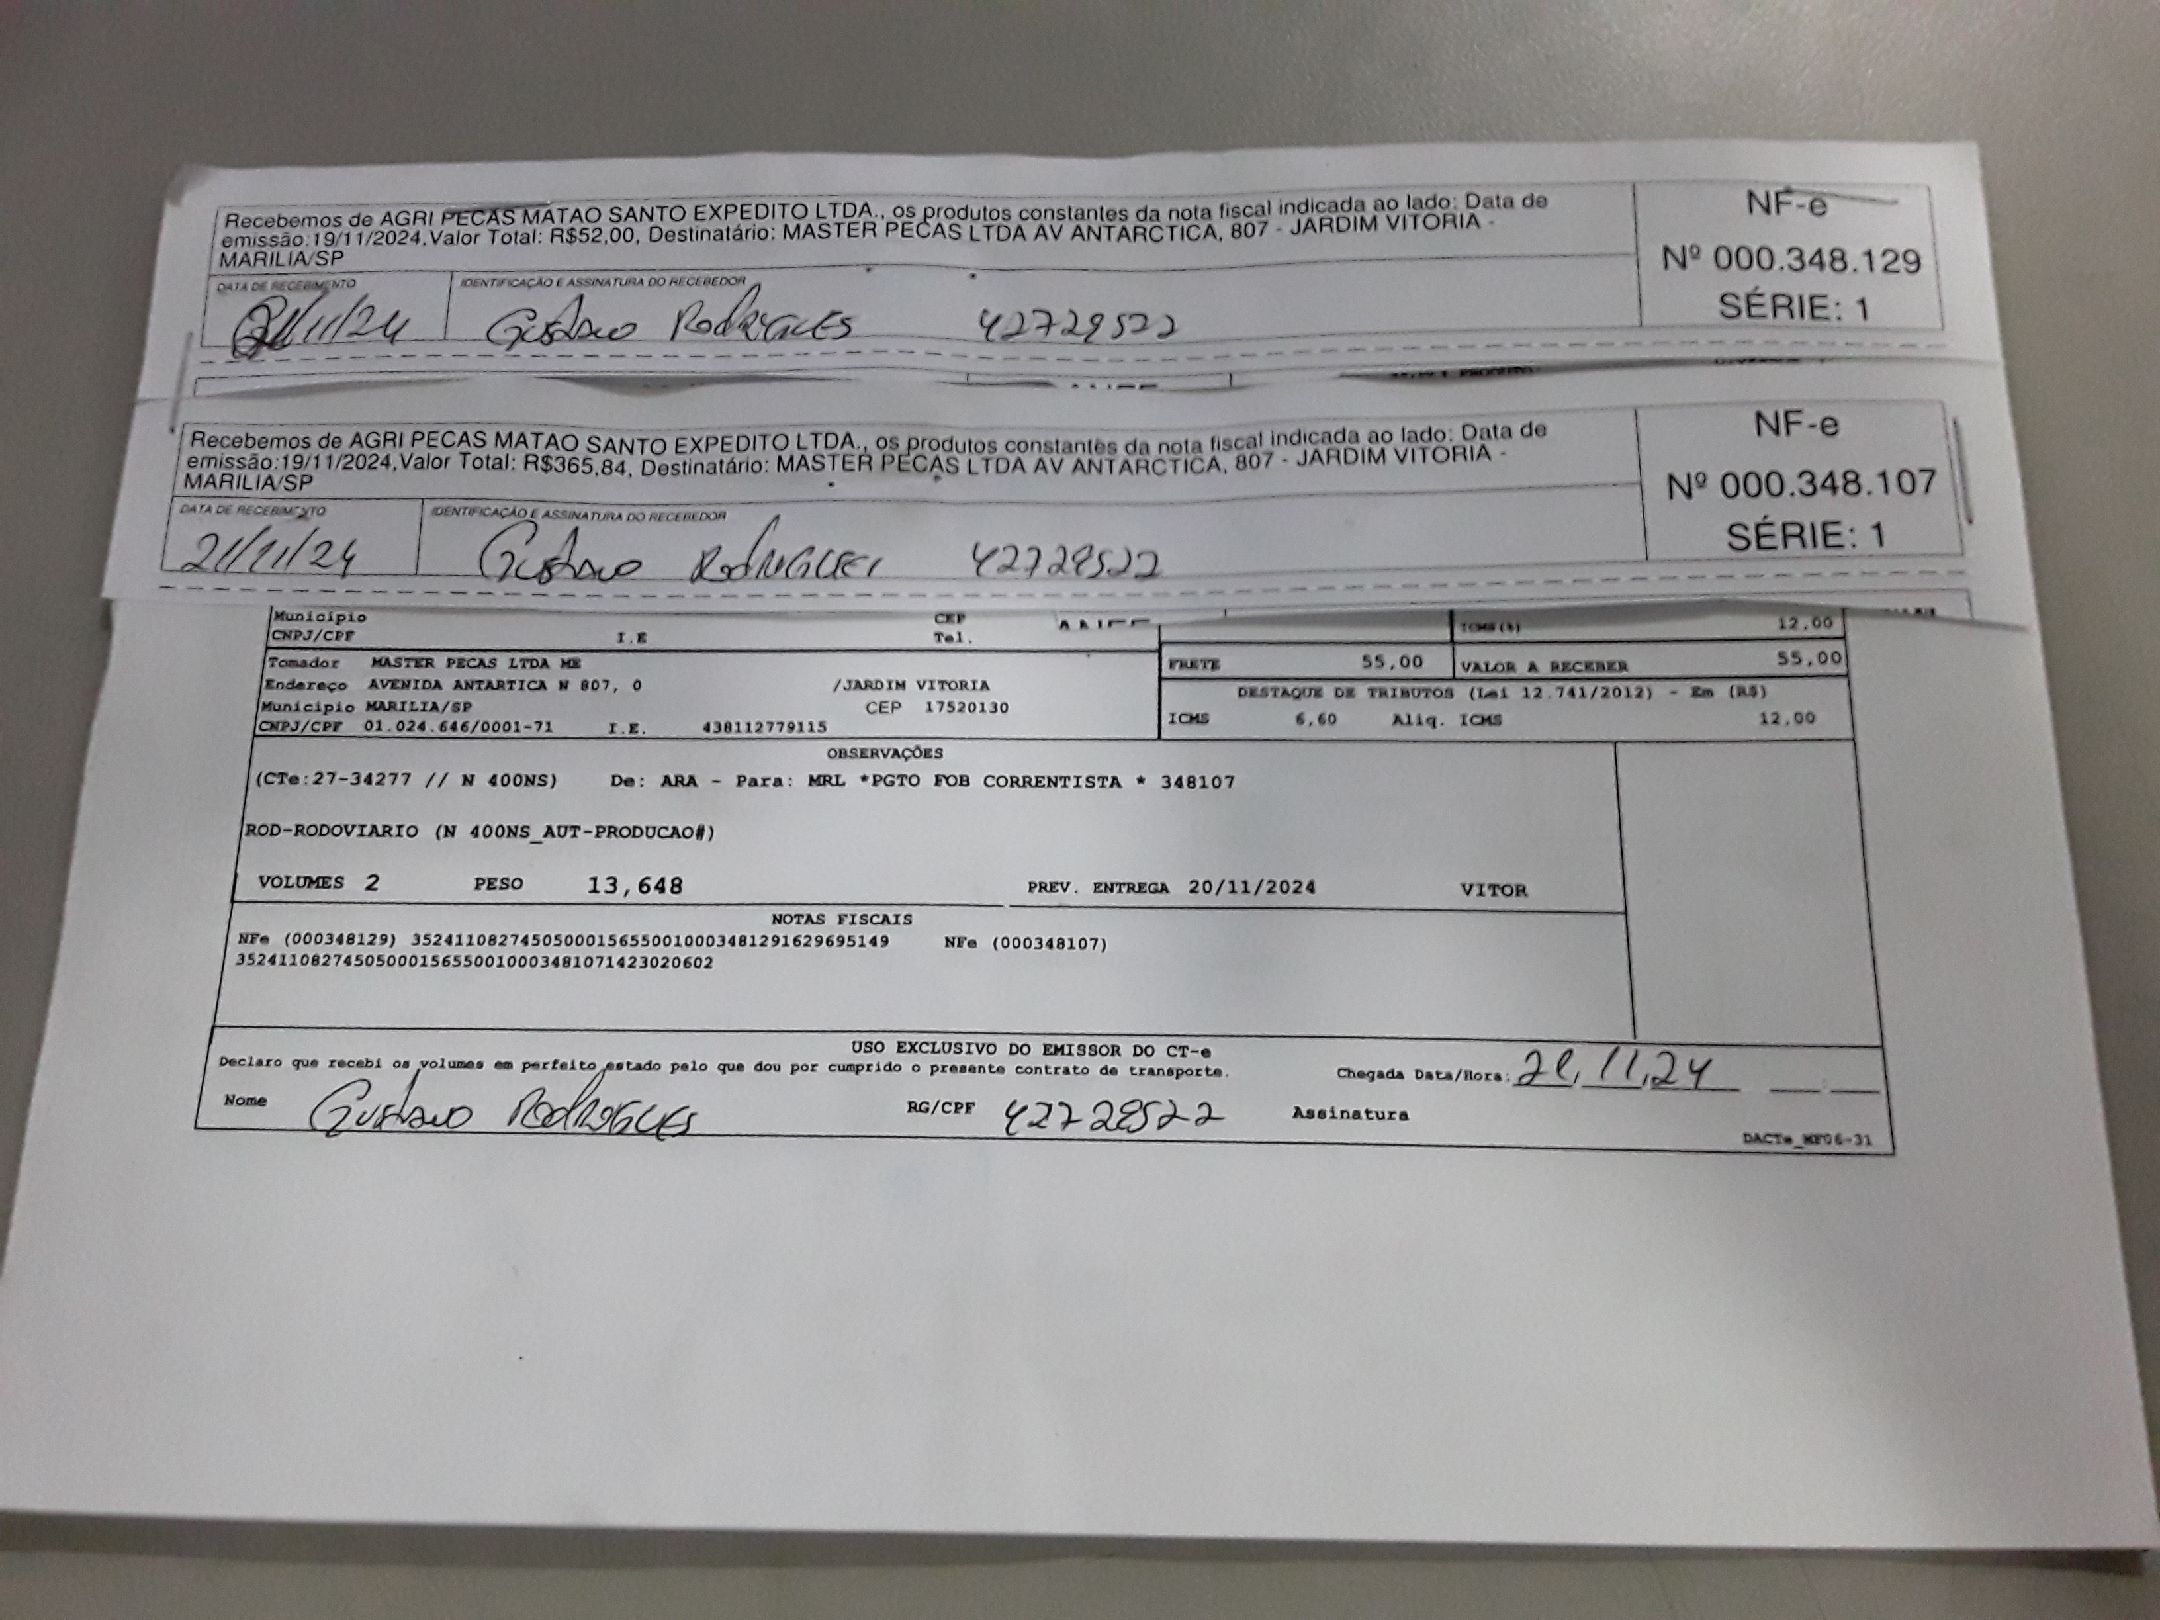 Recebemos de AGRI PECAS MATAO SANTO EXPEDITO LTDA., os produtos constantes da nota fiscal indicada ao lado: Data de
emissão:19/11/2024,Valor Total: R$52,00, Destinatário: MASTER PECAS LTDA AV ANTARCTICA, 807 - JARDIM VITORIA -
MARILIA/SP
NF-e
Nº 000.348.129
SÉRIE: 1
DATA DE RECEBIMENTO
IDENTIFICAÇÃO E ASSINATURA DO RECEBEDOR
21/11/24 Gustavo Rodrigues 42728522
Recebemos de AGRI PECAS MATAO SANTO EXPEDITO LTDA., os produtos constantes da nota fiscal indicada ao lado: Data de
emissão:19/11/2024,Valor Total: R$365,84, Destinatário: MASTER PECAS LTDA AV ANTARCTICA, 807 - JARDIM VITORIA -
MARILIA/SP
NF-e
Nº 000.348.107
SÉRIE: 1
DATA DE RECEBIMENTO
IDENTIFICAÇÃO E ASSINATURA DO RECEBEDOR
21/11/24 Gustavo Rodrigues 42728522
Município CEP
CNPJ/CPF I.E Tel.
ICMS(%) 12,00
Tomador MASTER PECAS LTDA ME
Endereço AVENIDA ANTARTICA N 807, 0 /JARDIM VITORIA
Município MARILIA/SP CEP 17520130
CNPJ/CPF 01.024.646/0001-71 I.E. 438112779115
FRETE 55,00 VALOR A RECEBER 55,00
DESTAQUE DE TRIBUTOS (Lei 12.741/2012) - Em (R$)
ICMS 6,60 Aliq. ICMS 12,00
OBSERVAÇÕES
(CTe:27-34277 // N 400NS) De: ARA - Para: MRL *PGTO FOB CORRENTISTA * 348107
ROD-RODOVIARIO (N 400NS_AUT-PRODUCAO#)
VOLUMES 2 PESO 13,648 PREV. ENTREGA 20/11/2024 VITOR
NOTAS FISCAIS
NFe (000348129) 35241108274505000156550010003481291629695149 NFe (000348107)
35241108274505000156550010003481071423020602
USO EXCLUSIVO DO EMISSOR DO CT-e
Declaro que recebi os volumes em perfeito estado pelo que dou por cumprido o presente contrato de transporte.
Chegada Data/Hora: 21,11,24
Nome Gustavo Rodrigues RG/CPF 42728522 Assinatura
DACTe_MF06-31